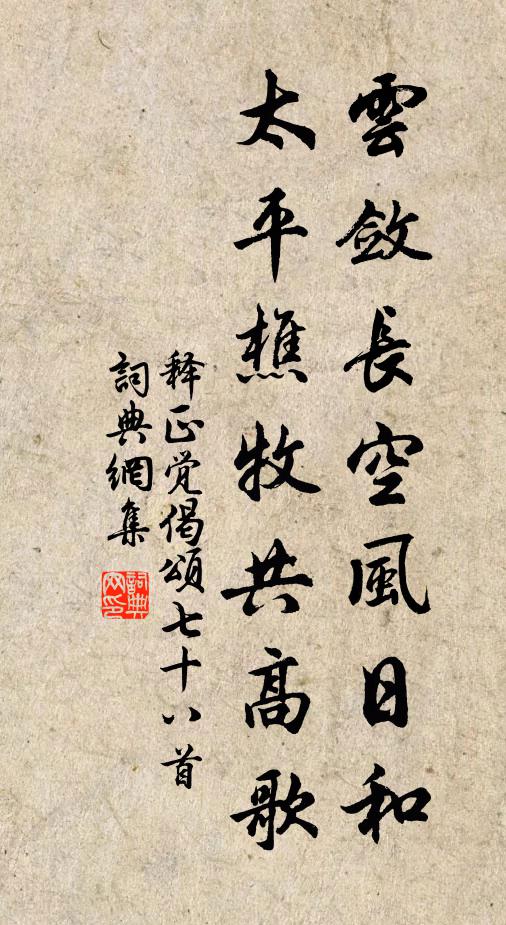 雲斂長空風日和
太平樵牧共高歌
释正觉偈頌七十八首
詞典網集
詞典网印